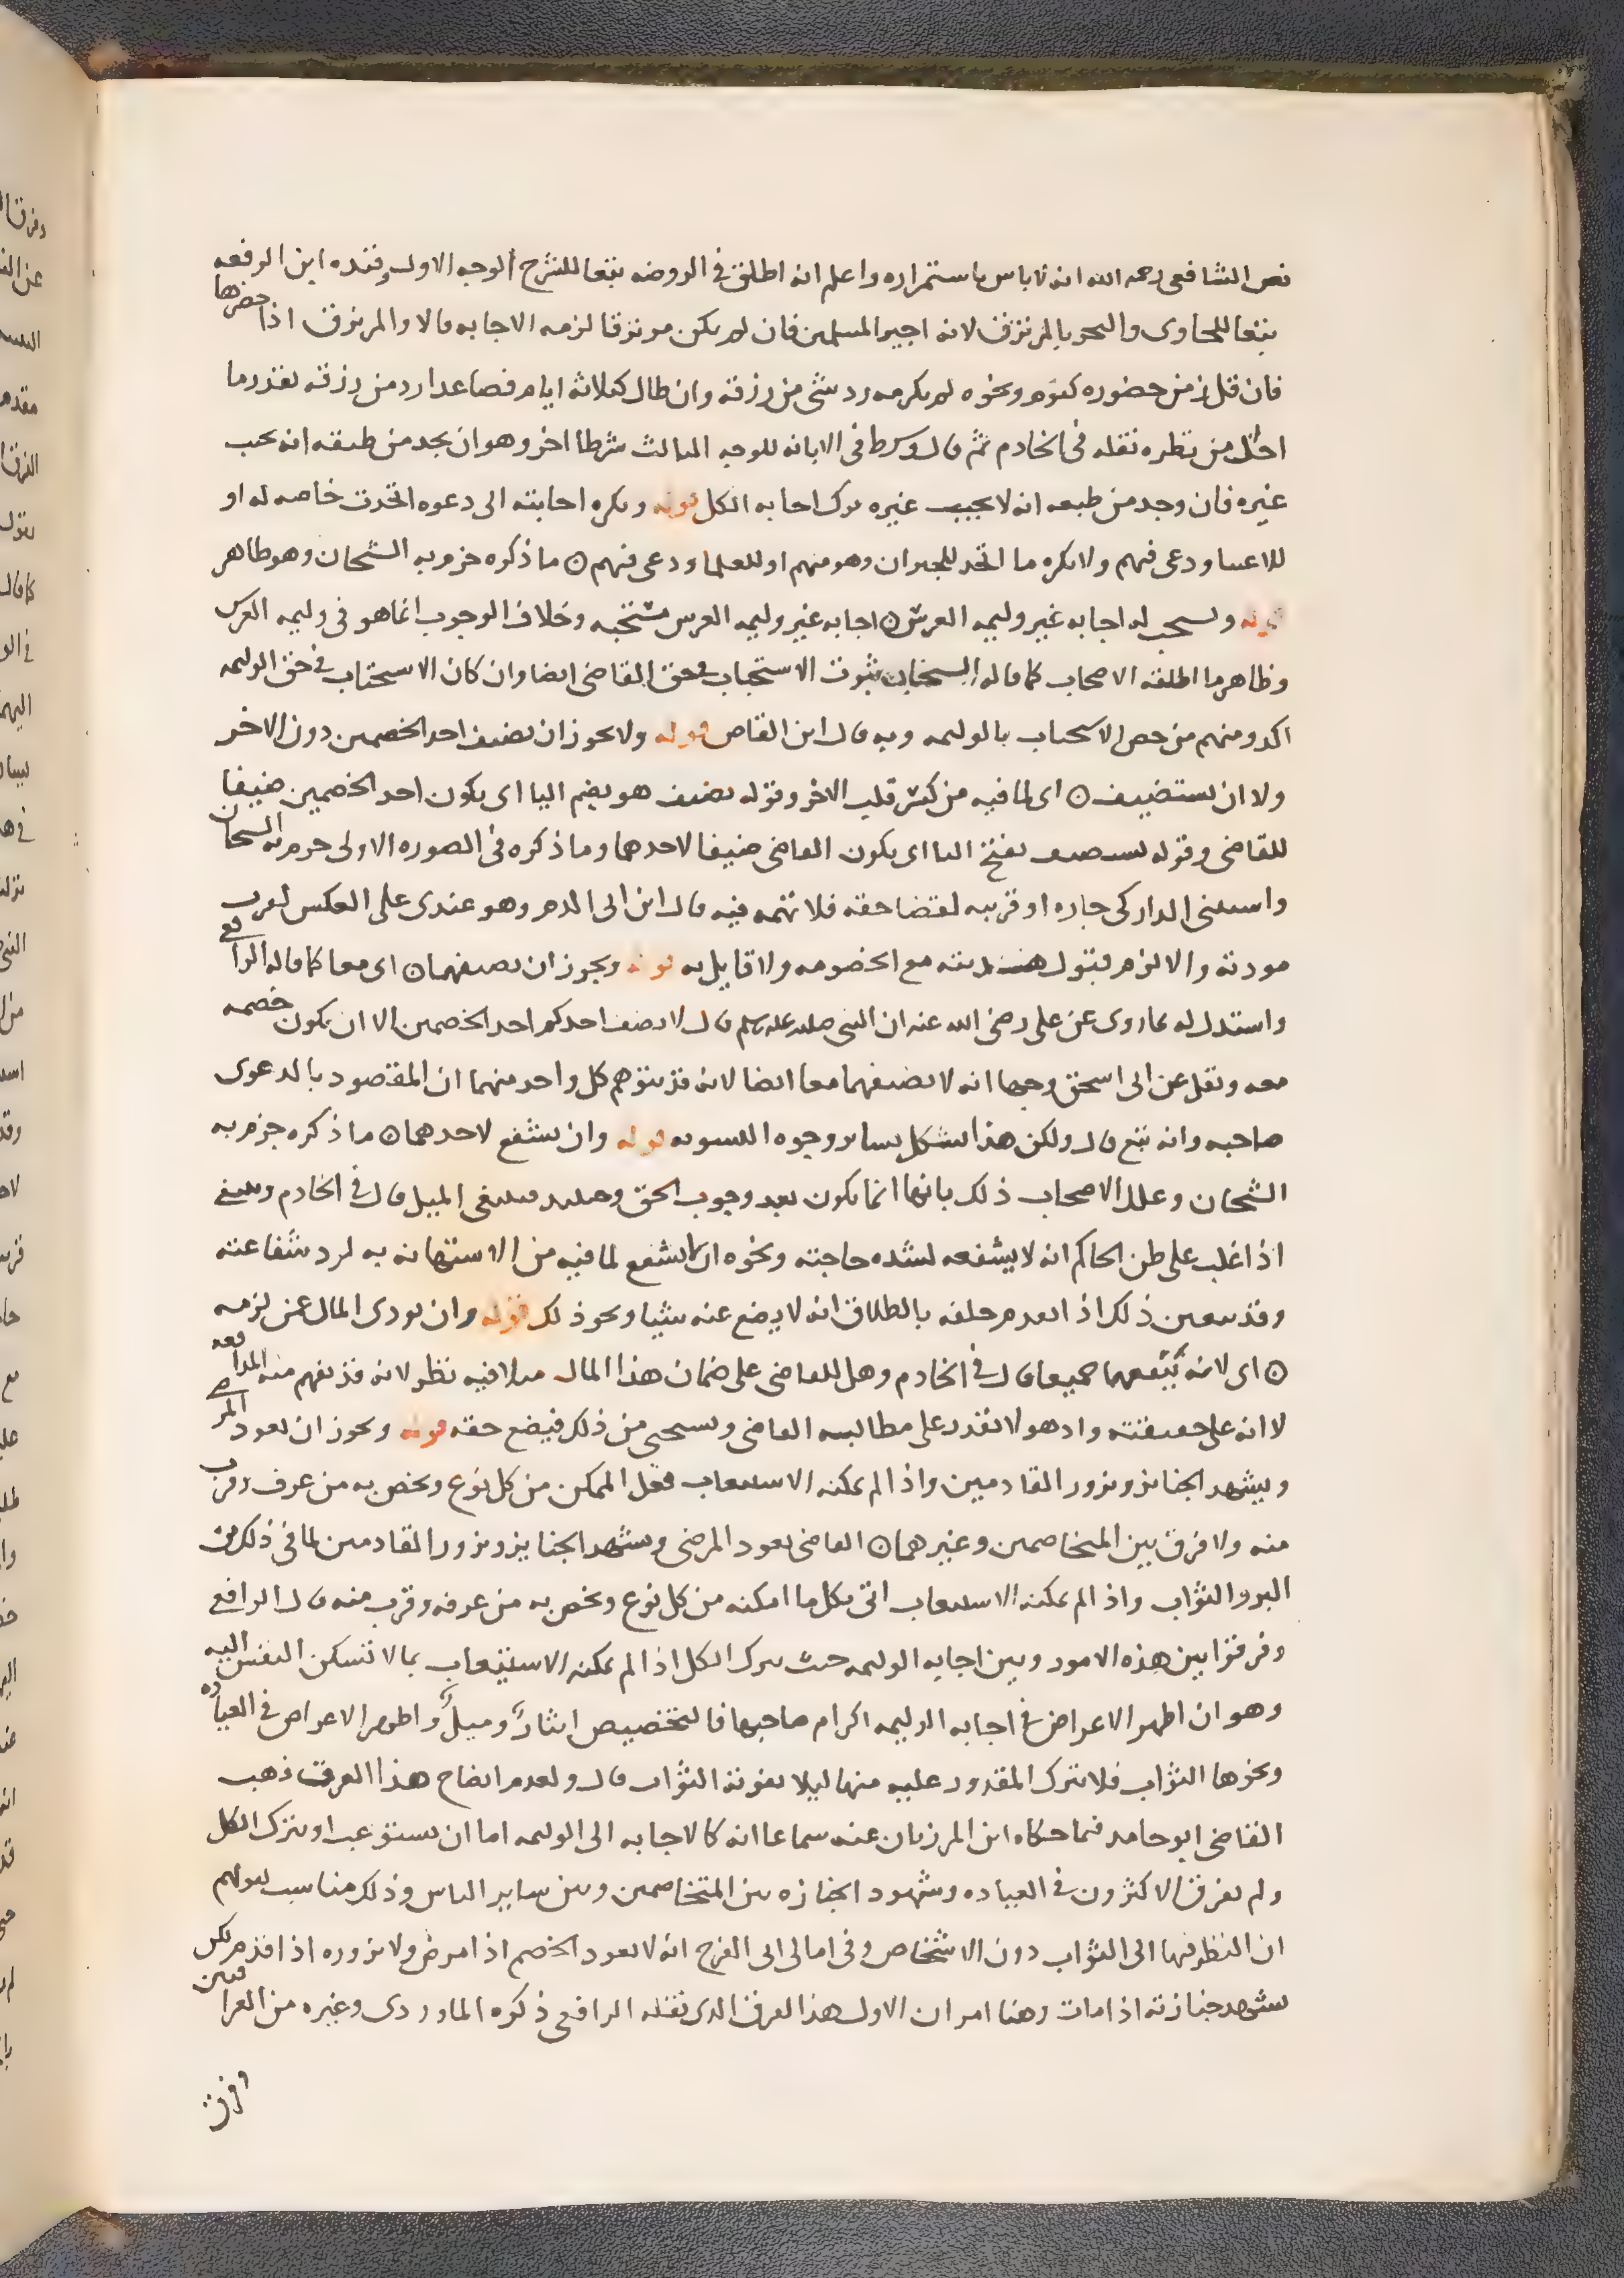 نص الشافعى رحمه الله انه لا باس باستمراره واعلم انه اطلق فى الروضه تبعا للشرح الوجه الاول وقيده ابن الرفعه
تبعا للحاوى والبحر بالمرتزق لانه اجير المسلمين فان لم يكن مرتزقا لزمه الاجابه قالا والمرتزق اذا حضرها
فان قل زمن حضوره كيوم ونحوه لم يلزمه رد شى من رزقه وان طال كثلاثه ايام فصاعدا رد من رزقه بقدر ما
اخل من نظره نقله فى الخادم ثم قال وشرط فى الابانه للوجه الثالث شرطا اخر وهو ان يجد من طبعه انه يجيب
غيره فان وجد من طبعه انه لا يجيب غيره ترك اجابه الكل قوله ويكره اجابته الى دعوه اتخذت خاصه له او
للاغنيا ودعى فيهم ولا يكره ما اتخذ للجيران وهو منهم او للعلما ودعى فيهم ن ما ذكره جزم به الشيخان وهو ظاهر
قوله ويستحب له اجابه غير وليمه العرس ن اجابه غير وليمه العرس مستحبه وخلاف الوجوب انما هو فى وليمه العرس
وظاهر ما اطلقه الاصحاب كما قاله الشيخان ثبوت الاستحباب فى حق القاضى ايضا وان كان الاستحباب فى حق الوليمه
اكد ومنهم من خص الاستحباب بالوليمه وبه قال ابن القاص قوله ولا يجوز ان يضيف احد الخصمين دون الاخر
ولا ان يستضيف ن اى لما فيه من كسر قلب الاخر وقوله يضيف هو بضم اليا اى يكون احد الخصمين ضيفا
للقاضى وقوله يستضيف بفتح اليا اى يكون القاضى ضيفا لاحدهما وما ذكره فى الصوره الاولى جزم به الشيخان
واستثنى الداركى جاره او قريبه لقضا حقه فلا تهمه فيه قال ابن ابى الدم وهو عندى على العكس لقرب
مودته والا لزم قبول هديته مع الخصومه ولا قايل به قوله ويجوز ان يضيفهما ن اى معا كما قاله الرافعى
واستدل له بما روى عن على رضى الله عنه ان النبى صلى الله عليه وسلم قال لا يضيف احدكم احد الخصمين الا ان يكون خصمه
معه ونقل عن ابى اسحق وجها انه لا يضيفهما معا ايضا لانه قد يتوهم كل واحد منهما ان المقصود بالدعوى
صاحبه وانه تبع قال ولكن هذا يشكل بساير وجوه التسويه قوله وان يشفع لاحدهما ن ما ذكره جزم به
الشيخان وعلل الاصحاب ذلك بانها انما يكون بعد وجوب الحق وحينئذ فينتفى الميل قال فى الخادم وينبغى
اذا غلب على ظن الحاكم انه لا يشفعه لشده حاجته ونحوه ان لا يشفع لما فيه من الاستهانه به لرد شفاعته
وقد يتعين ذلك اذا تقدم حلفه بالطلاق انه لا يضع عنه شيا ونحو ذلك قوله وان يودى المال عمن لزمه
ن اى لانه ينفعهما جميعا قال فى الخادم وهل للقاضى على ضمان هذا المال مثلا فيه نظر لانه قد يفهم منه المدافعه
لا انه على حقيقته واذ هو لا يقدر على مطالبه القاضى ويستحى من ذلك فيضع حقه قوله ويجوز ان يعود المرضى
ويشهد الجنايز ويزور القادمين واذا لم يمكنه الاستيعاب فعل الممكن من كل نوع ويخص به من عرف وقرب
منه ولا فرق بين المتخاصمين وغيرهما ن القاضى يعود المرضى ويشهد الجنايز ويزور القادمين لما فى ذلك من
البر والثواب واذا لم يمكنه الاستيعاب اتى بكل ما امكنه من كل نوع ويخص به من عرفه وقرب منه قال الرافعى
وفرقوا بين هذه الامور وبين اجابه الوليمه حيث يترك الكل اذا لم يمكنه الاستيعاب بما لا تسكن النفس اليه
وهو ان اظهر الاغراض فى اجابه الوليمه اكرام صاحبها فالتخصيص ايثار وميل واظهر الاغراض فى العياده
ونحوها الثواب فلا يترك المقدور عليه منها ليلا يفوته الثواب قال ولعدم ايضاح هذا الفرق ذهب
القاضى ابو حامد فيما حكاه ابن المرزبان عنه سماعا انه كالاجابه الى الوليمه اما ان يستوعب او يترك الكل
ولم يفرق الاكثرون فى العياده وشهود الجنازه بين المتخاصمين وبين ساير الناس وذلك مناسب لقولهم
ان النظر فيها الى الثواب دون الاشخاص وفى امالى ابى الفرج انه لا يعود الخصم اذا مرض ولا يزوره اذا قدم لكن
يشهد جنازته اذا مات وهنا امران الاول هذا الفرق الذى نقله الرافعى ذكره الماوردى وغيره من العراقيين
وفرق